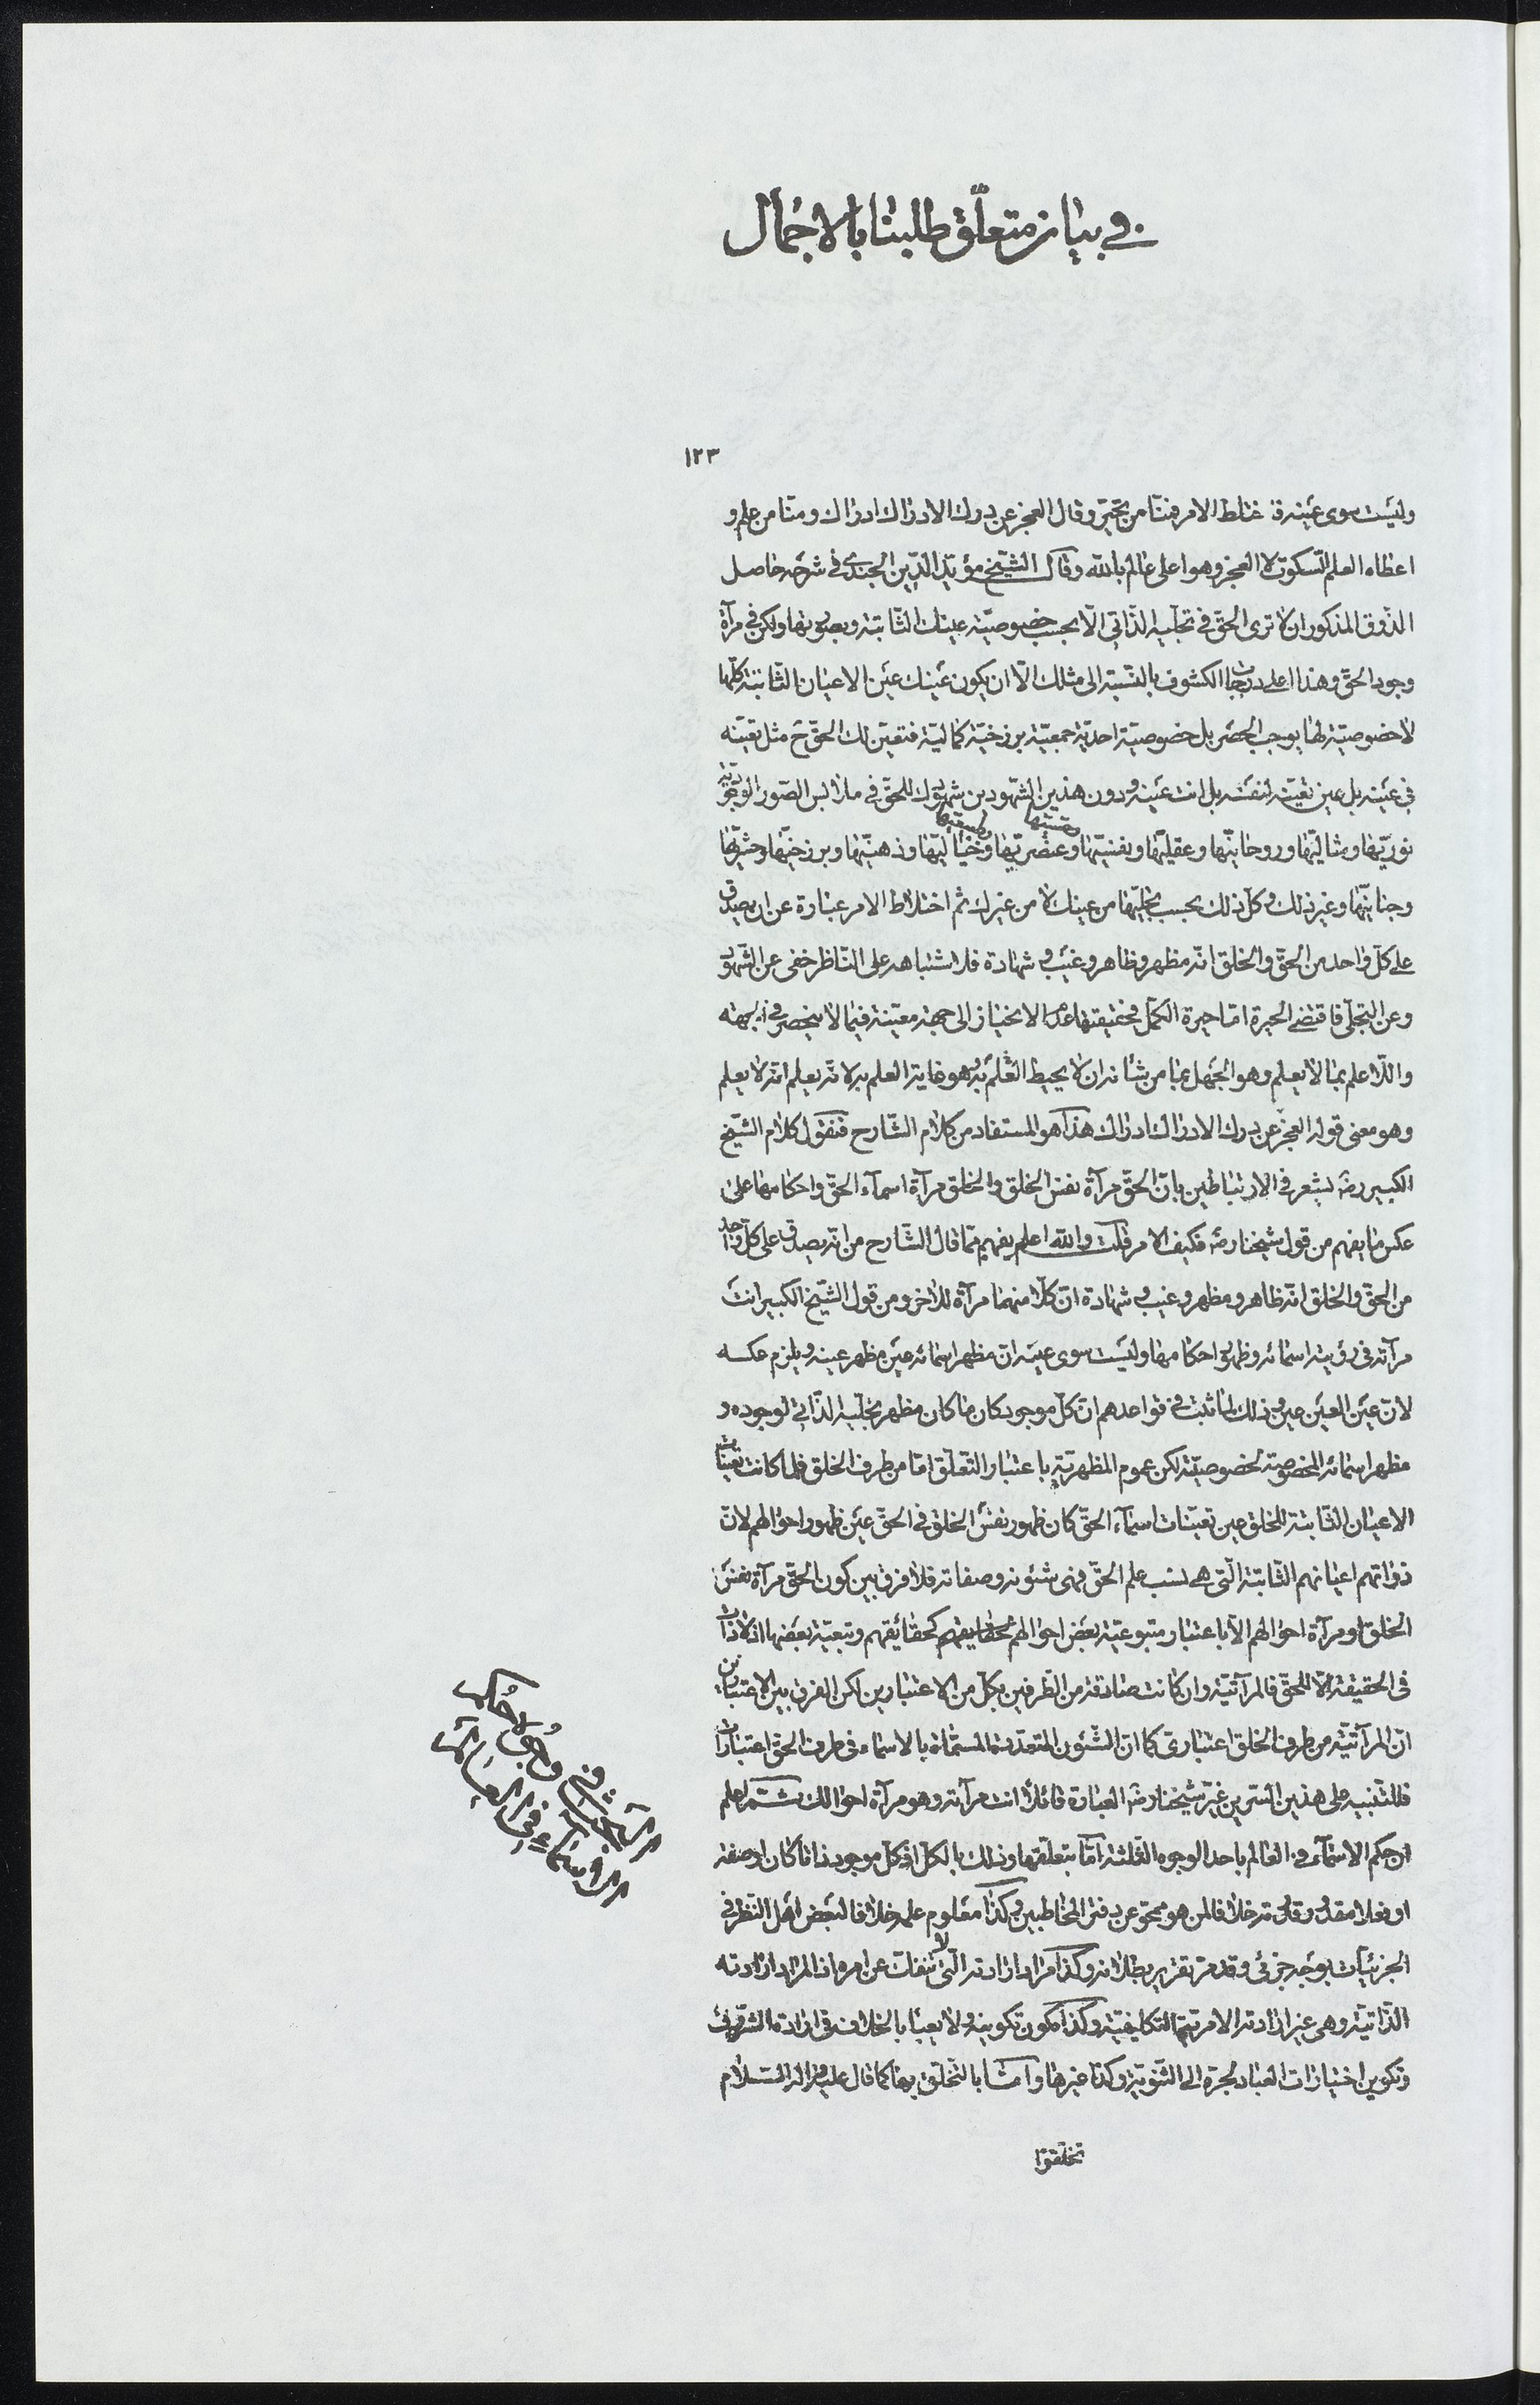 في بيان متعلّق طلبنا بالاجمال
١٢٣
وليست سوى عينه فاختلط الامر فمنّا من تحيّر وقال العجز عن درك الادراك ادراك ومنّا من علم و
اعطاه العلم السّكوت لا العجز وهو اعلى عالم بالله وقال الشّيخ مؤيّد الدّين الجندي في شرحه حاصل
الذّوق المذكور ان لا ترى الحقّ في تجلّيه الذّاتي الّا بحسب خصوصيّة عينك الثّابتة وبصورتها ولكن في مرآة
وجود الحقّ وهذا اعلى درجات الكشوف بالنّسبة الى مثلك الّا ان يكون عينك عين الاعيان الثّابتة كلّها
لا خصوصيّة لها بوجب الحصر بل خصوصيّة احديّة جمعيّة برزخيّة كماليّة فتعيّن لك الحقّ ح مثل تعيّنه
في عينه بل عين تعيّنه لنفسه بل انت عينه ودون هذين الشّهودين شهودك للحقّ في ملابس الصّور الوجوديّة
نوريّتها ومثاليّتها وروحانيّتها وعقليّتها ونفسيّتها وعنصريّتها وخياليّتها وذهنيّتها وبرزخيّتها وحشريّتها
وجنانيّتها وغير ذلك وكلّ ذلك بحسب تجلّيها من عينك لا من غيرك ثم اختلاط الامر عبارة عن ان يصدق
على كلّ واحد من الحقّ والخلق انّه مظهر وظاهر وغيب وشهادة فلاشتباهه على النّاظر خفى عن الشّهود
وعن التجلّى فاقتضى الحيرة امّا حيرة الكمّل فحقيقتها عدم الانحياز الى جهة معيّنة فيما لا ينحصر في جهته
والّا علم بما لا يعلم وهو الجهل بما من شأنه ان لا يحيط العلم به وهو غاية العلم به لانّه يعلم انّه لا يعلم
وهو معنى قوله العجز عن درك الادراك ادراك هذا هو المستفاد من كلام الشّارح فنقول كلام الشيخ
الكبير رضه يشعر في الارتباطين بانّ الحقّ مرآة نفس الخلق والخلق مرآة اسمآء الحقّ واحكامها على
عكس ما يفهم من قول شيخنا رضه فكيف الامر قلت والله اعلم يفهم ممّا قال الشّارح من انّه يصدق على كلّ واحد
من الحقّ والخلق انّه ظاهر ومظهر وغيب وشهادة انّ كلّا منهما مرآة للاخر ومن قول الشّيخ الكبير انت
مرآته في رؤيته اسمائه وظهور احكامها وليست سوى عينه انّ مظهر اسمائه عين مظهر عينه ويلزم عكسه
لانّ عين العين عين وذلك لما ثبت في قواعدهم انّ كلّ موجود كان ما كان مظهر تجلّيه الذّاتي لوجوده و
مظهر اسمائه المخصوصة لخصوصيّته لكن عموم المظهريّة باعتبار التّعلّق امّا من طرف الخلق فلما كانت تعيّنات
الاعيان الثّابتة للخلق عين تعيّنات اسمآء الحقّ كان ظهور نفس الخلق في الحقّ عين ظهور احوالهم لانّ
ذواتهم اعيانهم الثّابتة الّتى هى نسب علم الحقّ فهى شئونه وصفاته فلا فرق بين كون الحقّ مرآة نفس
الخلق او مرآة احوالهم الّا باعتبار متبوعيّة بعض احوالهم كحقائقهم وتبعيّة بعضها اذ لا ذات
في الحقيقة الّا للحقّ فالمرآتيّة وان كانت صادقة من الطّرفين بكلّ من الاعتبارين لكن الفرق بين الاعتبارين
انّ المرآتيّة من طرف الخلق اعتبارىّ كما انّ الشّئون المتعدّدة المسمّاة بالاسماء في طرف الحقّ اعتبارات
فللتّنبيه على هذين السّرين غيّر شيخنا رضه العبارة قائلا انت مرآته وهو مرآة احوالك ثمّ اعلم
ان حكم الاسمآء في العالم باحد الوجوه الثّلثة امّا بتعلّقها وذلك بالكلّ اذ كلّ موجود ذاتا كان او صفة
او فعلا مقدور قدرته خلافا لمن هو ممحوّ عن دفتر المخاطبين وكذا معلوم علمه خلافا لبعض اهل النّظر في
الجزئيّات بوجه جزئى وقد مرّ تقرير بطلانه وكذا مراد ارادته الّتى لا تنفكّ عن امره اذ المراد ارادته
الذّاتيّة وهى غير ارادته الامريّة التكليفيّة وكذا مكون تكوينه ولا يعبأ بالخلاف في ارادة الشرور
وتكوين اختيارات العباد لجرّه الى الثّنويّة وكذا غيرها وامّا بالتّخلّق بها كما قال عليه واله السّلام
تخلّقوا